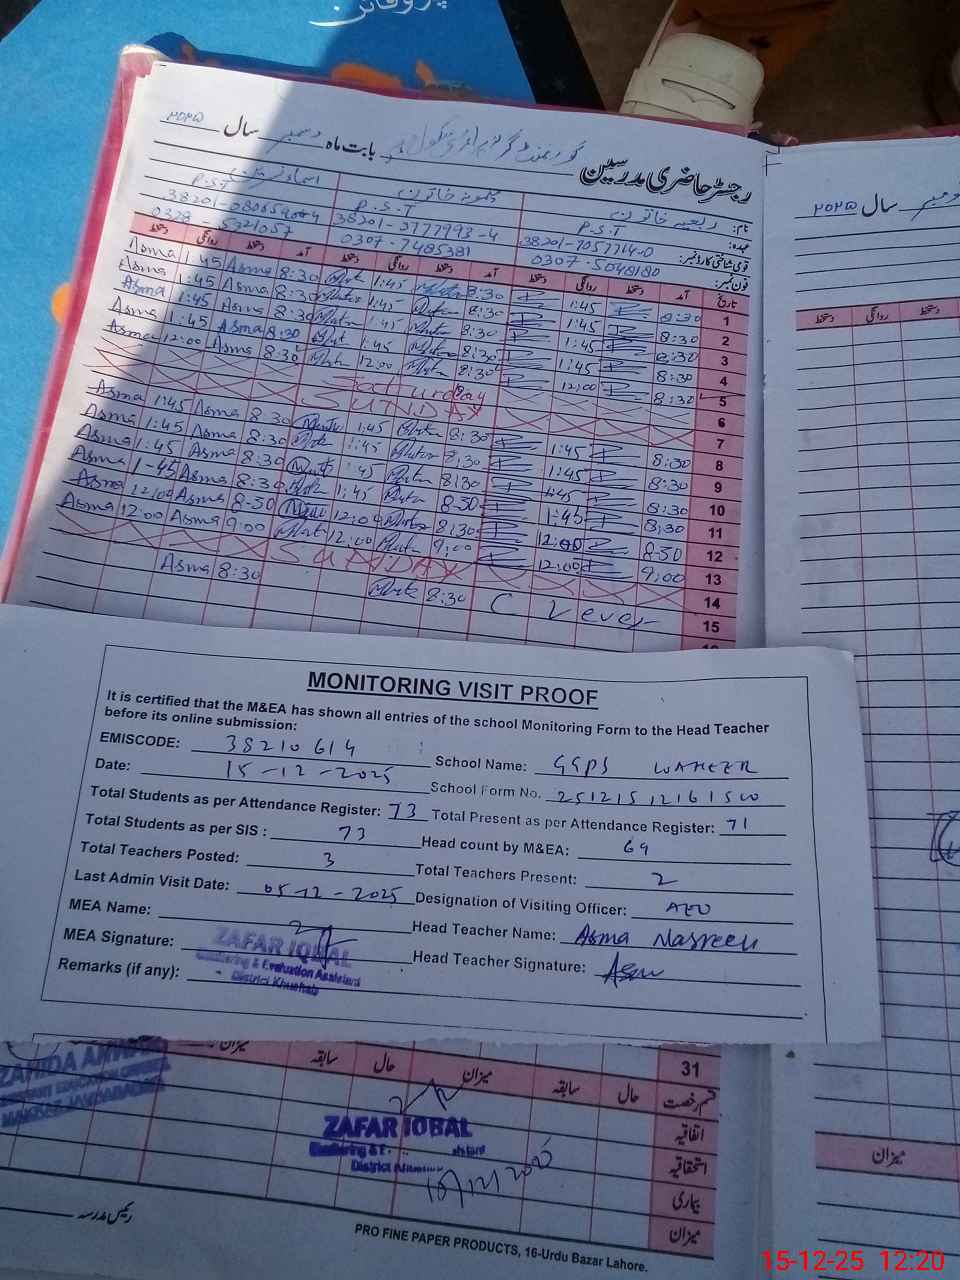 پروفائل
رجسٹر حاضری مدرسین گورنمنٹ گرلز پرائمری سکول بابت ماہ دسمبر سال ۲۰۲۵
نام: ربعیہ خاتون
عہدہ: P.S.T P.S.T P.S.T
قومی شناختی کارڈ نمبر: 38201-7057714-0 38201-3777993-4
فون نمبر: 0307-5048180 0307-7485381 0328-5921057
تاریخ آمد دستخط روانگی دستخط آمد دستخط روانگی دستخط آمد دستخط روانگی دستخط
1 8:30 1:45 8:30 1:45 8:30 Asma 1:45 Asma
2 8:30 1:45 8:30 1:45 8:30 Asma 1:45 Asma
3 8:30 1:45 8:30 1:45 8:30 Asma 1:45 Asma
4 8:30 1:45 8:30 1:45 8:30 Asma 1:45 Asma
5 8:30 12:00 8:30 12:00 8:30 Asma 12:00 Asma
6 Saturday
7 SUNDAY
8 8:30 1:45 8:30 1:45 8:30 Asma 1:45 Asma
9 8:30 1:45 8:30 1:45 8:30 Asma 1:45 Asma
10 8:30 1:45 8:30 1:45 8:30 Asma 1:45 Asma
11 8:30 1:45 8:30 1:45 8:30 Asma 1-45 Asma
12 8:30 12:00 8:30 12:00 8:30 Asma 12:00 Asma
13 9:00 12:00 9:00 12:00 9:00 Asma 12:00 Asma
14 SUNDAY
15 C Lever 8:30 8:30 Asma
MONITORING VISIT PROOF
It is certified that the M&EA has shown all entries of the school Monitoring Form to the Head Teacher
before its online submission:
EMISCODE: 38210614 School Name: GGPS WAHEER
Date: 15-12-2025 School Form No. 25121512161500
Total Students as per Attendance Register: 73 Total Present as per Attendance Register: 71
Total Students as per SIS : 73 Head count by M&EA: 69
Total Teachers Posted: 3 Total Teachers Present: 2
Last Admin Visit Date: 05-12-2025 Designation of Visiting Officer: AEO
MEA Name: Head Teacher Name: Asma Nasreen
MEA Signature: ZAFAR IQBAL Head Teacher Signature: Asm
Monitoring & Evaluation Assistant
District Khushab
Remarks (if any):
31
میزان سابقہ حال میزان سابقہ حال قسم رخصت
اتفاقیہ
استحقاقیہ
بیماری
میزان
ZAHIDA
ZAFAR IQBAL
District
رئیس مدرسہ
PRO FINE PAPER PRODUCTS, 16-Urdu Bazar Lahore.
سال ۲۰۲۵
دستخط روانگی دستخط
میزان
15-12-25 12:20